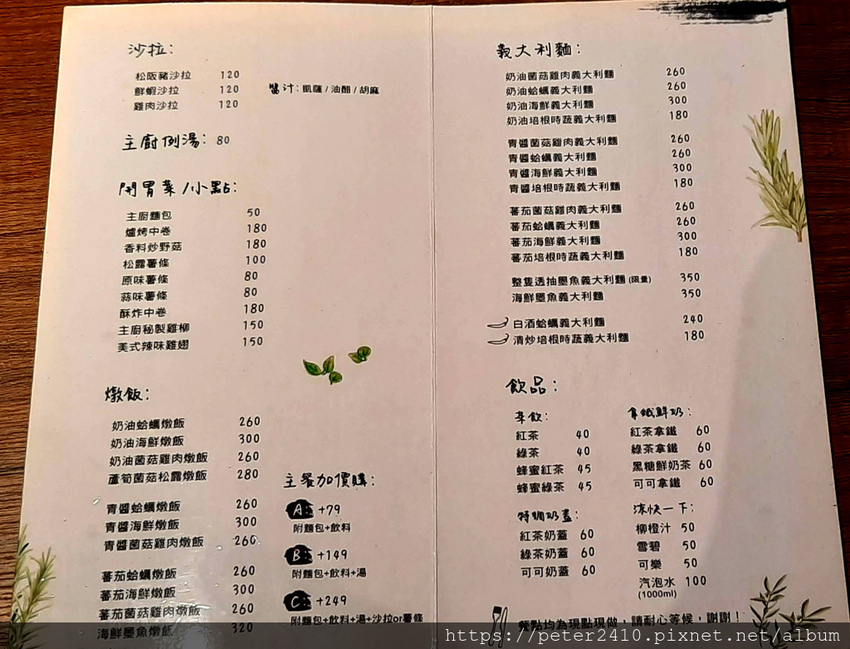 沙拉:
松阪豬沙拉 120
鮮蝦沙拉 120
雞肉沙拉 120
醬汁: 凱薩 / 油醋 / 胡麻
主廚例湯: 80
開胃菜/小點:
主廚麵包 50
爐烤中卷 180
香料炒野菇 180
松露薯條 100
原味薯條 80
蒜味薯條 80
酥炸中卷 180
主廚秘製雞柳 150
美式辣味雞翅 150
燉飯:
奶油蛤蠣燉飯 260
奶油海鮮燉飯 300
奶油菌菇雞肉燉飯 260
蘆筍菌菇松露燉飯 280
青醬蛤蠣燉飯 260
青醬海鮮燉飯 300
青醬菌菇雞肉燉飯 260
蕃茄蛤蠣燉飯 260
蕃茄海鮮燉飯 300
蕃茄菌菇雞肉燉飯 260
海鮮墨魚燉飯 320
主餐加價購:
A: +79
附麵包+飲料
B: +149
附麵包+飲料+湯
C: +249
附麵包+飲料+湯+沙拉or薯條
義大利麵:
奶油菌菇雞肉義大利麵 260
奶油蛤蠣義大利麵 260
奶油海鮮義大利麵 300
奶油培根時蔬義大利麵 180
青醬菌菇雞肉義大利麵 260
青醬蛤蠣義大利麵 260
青醬海鮮義大利麵 300
青醬培根時蔬義大利麵 180
蕃茄菌菇雞肉義大利麵 260
蕃茄蛤蠣義大利麵 260
蕃茄海鮮義大利麵 300
蕃茄培根時蔬義大利麵 180
整隻透抽墨魚義大利麵 (限量) 350
海鮮墨魚義大利麵 350
白酒蛤蠣義大利麵 240
清炒培根時蔬義大利麵 180
飲品:
茶飲:
紅茶 40
綠茶 40
蜂蜜紅茶 45
蜂蜜綠茶 45
特調奶蓋:
紅茶奶蓋 60
綠茶奶蓋 60
可可奶蓋 60
拿鐵鮮奶:
紅茶拿鐵 60
綠茶拿鐵 60
黑糖鮮奶茶 60
可可拿鐵 60
涼快一下:
柳橙汁 50
雪碧 50
可樂 50
汽泡水 100
(1000ml)
餐點均為現點現做,請耐心等候,謝謝!
https://peter2410.pixnet.net/album